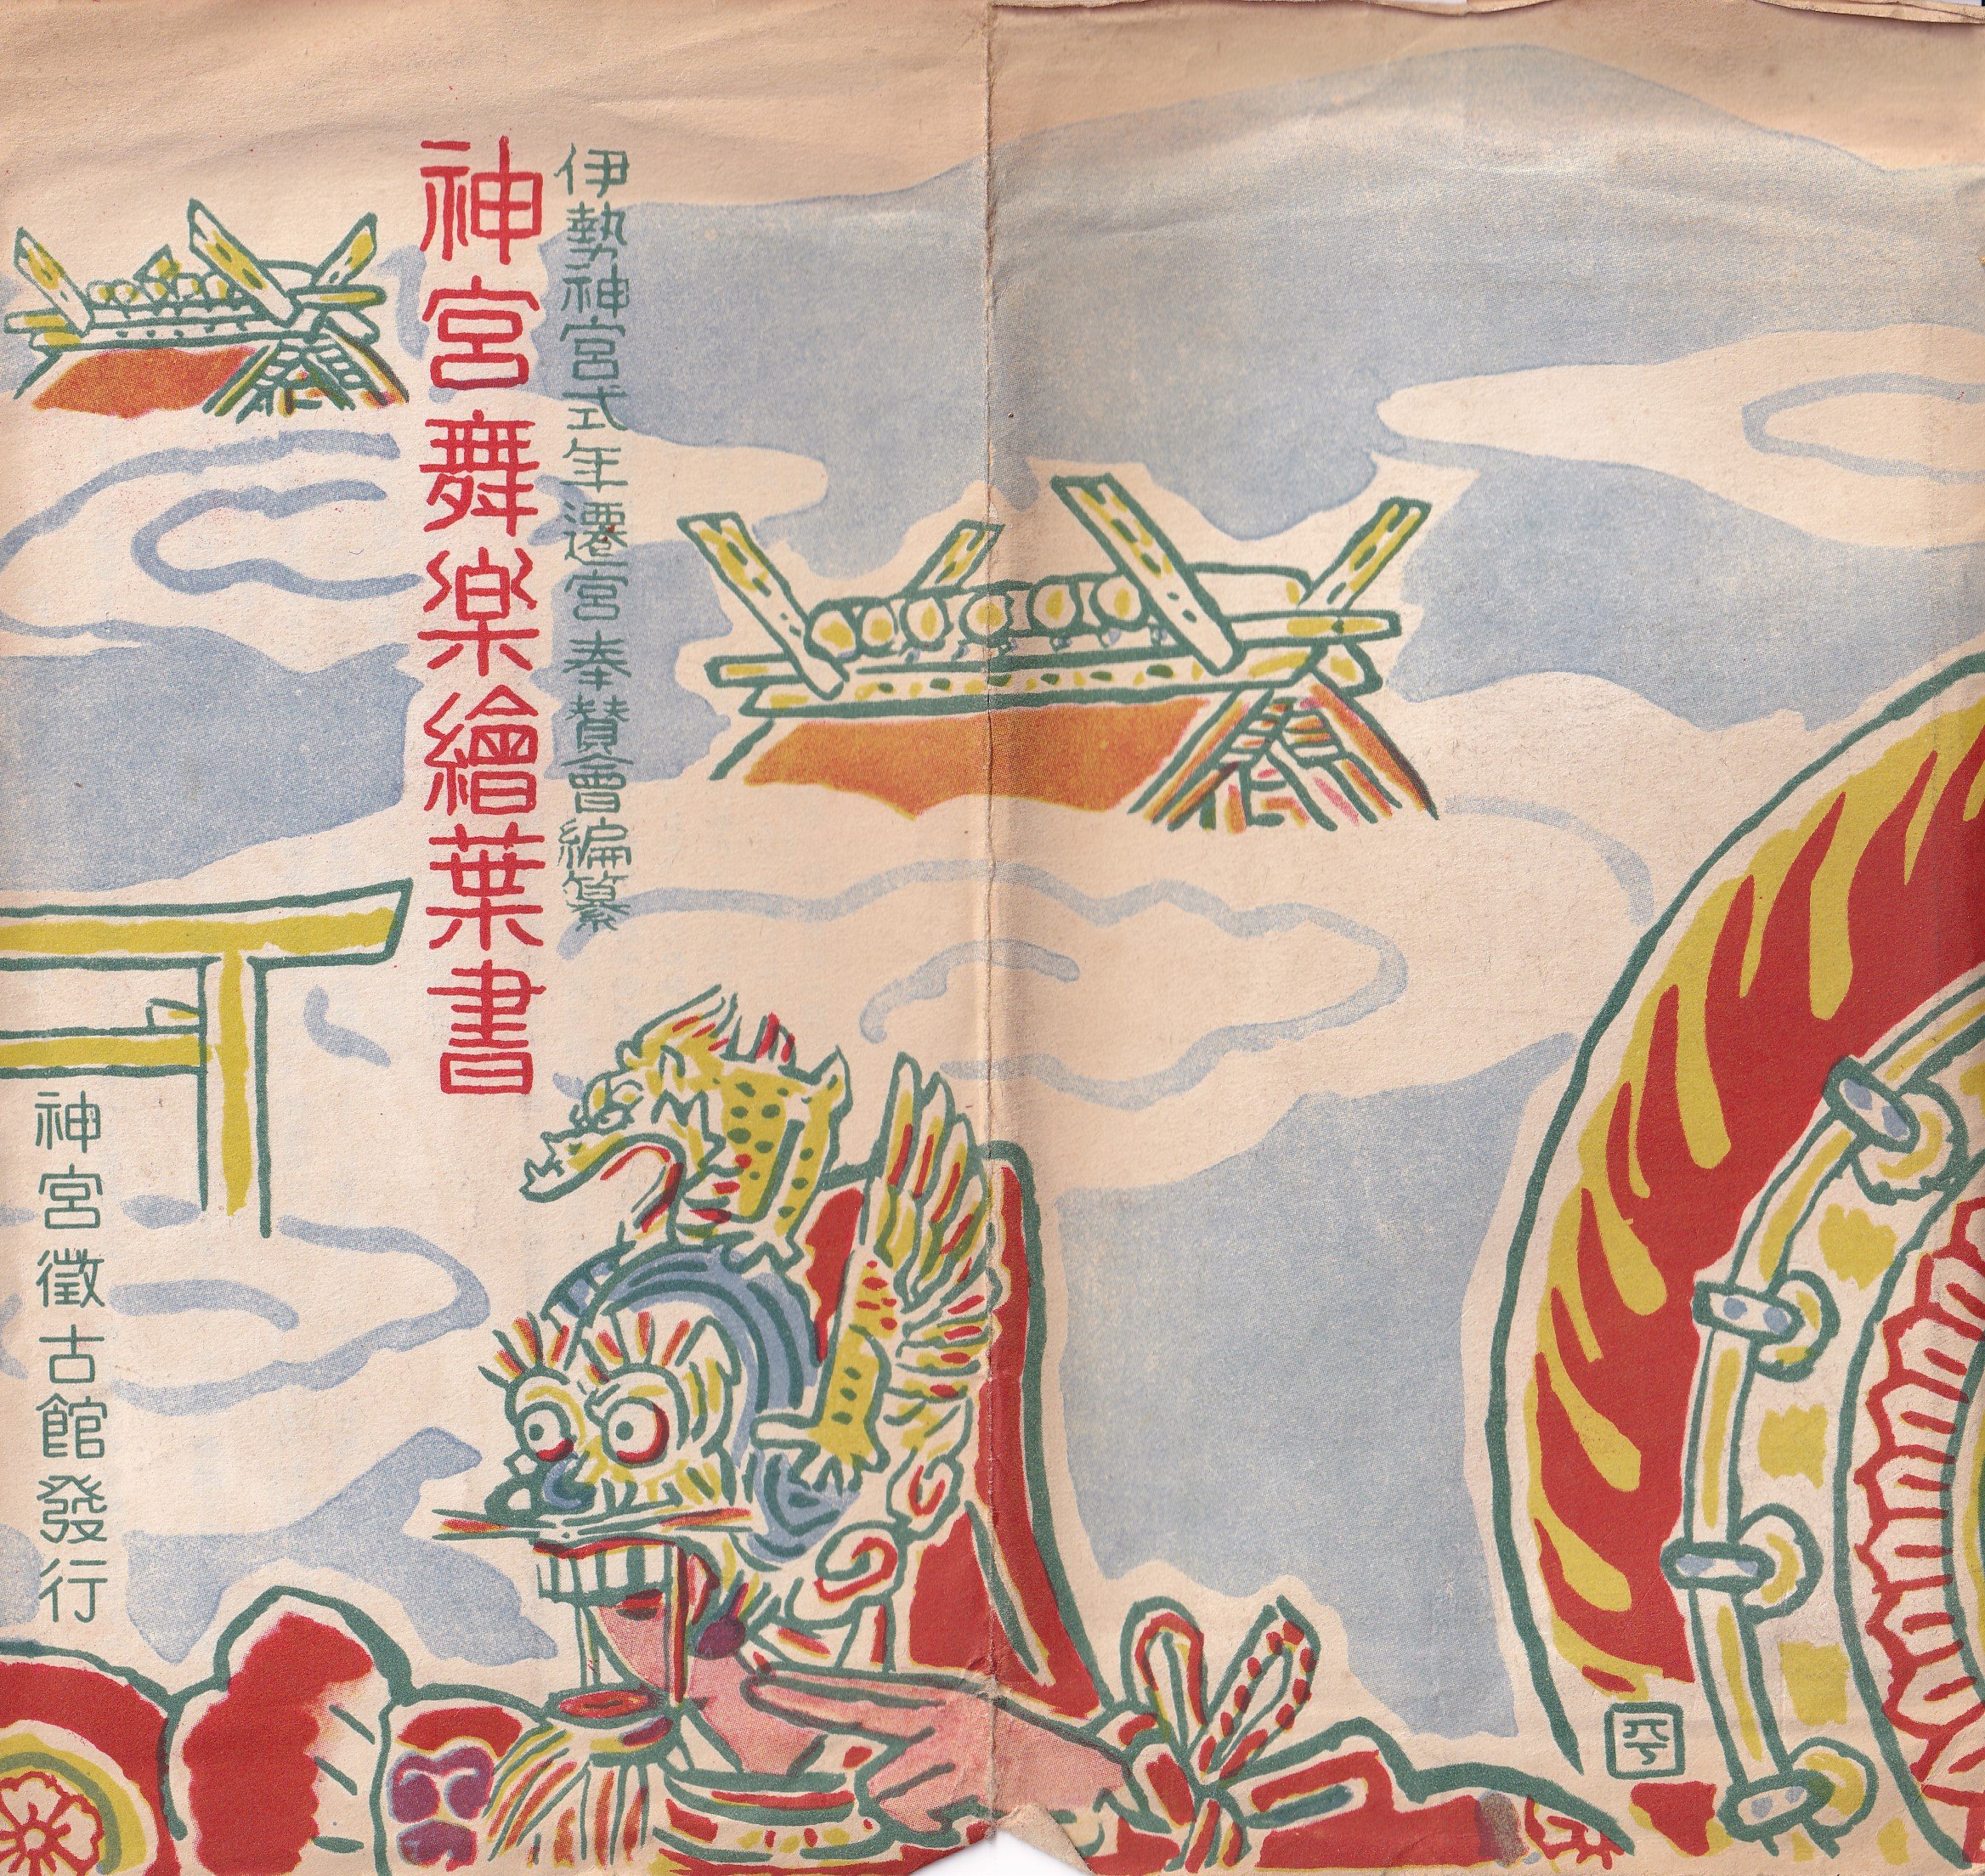 伊勢神宮式年遷宮奉賛會編纂
神宮舞楽繪葉書
神宮徴古館發行